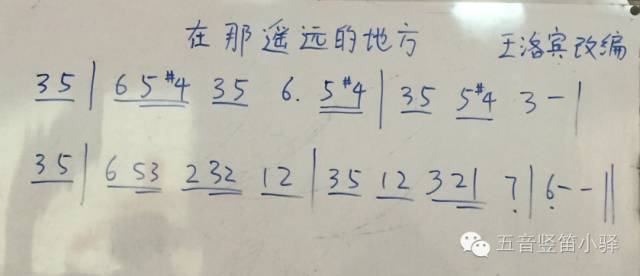 在那遥远的地方 王洛宾改编
35 | 65#4 35 6. 5#4 | 35 5#4 3 - |
35 | 653 232 12 | 35 12 321 7 | 6 - - ||
五音竖笛小驿